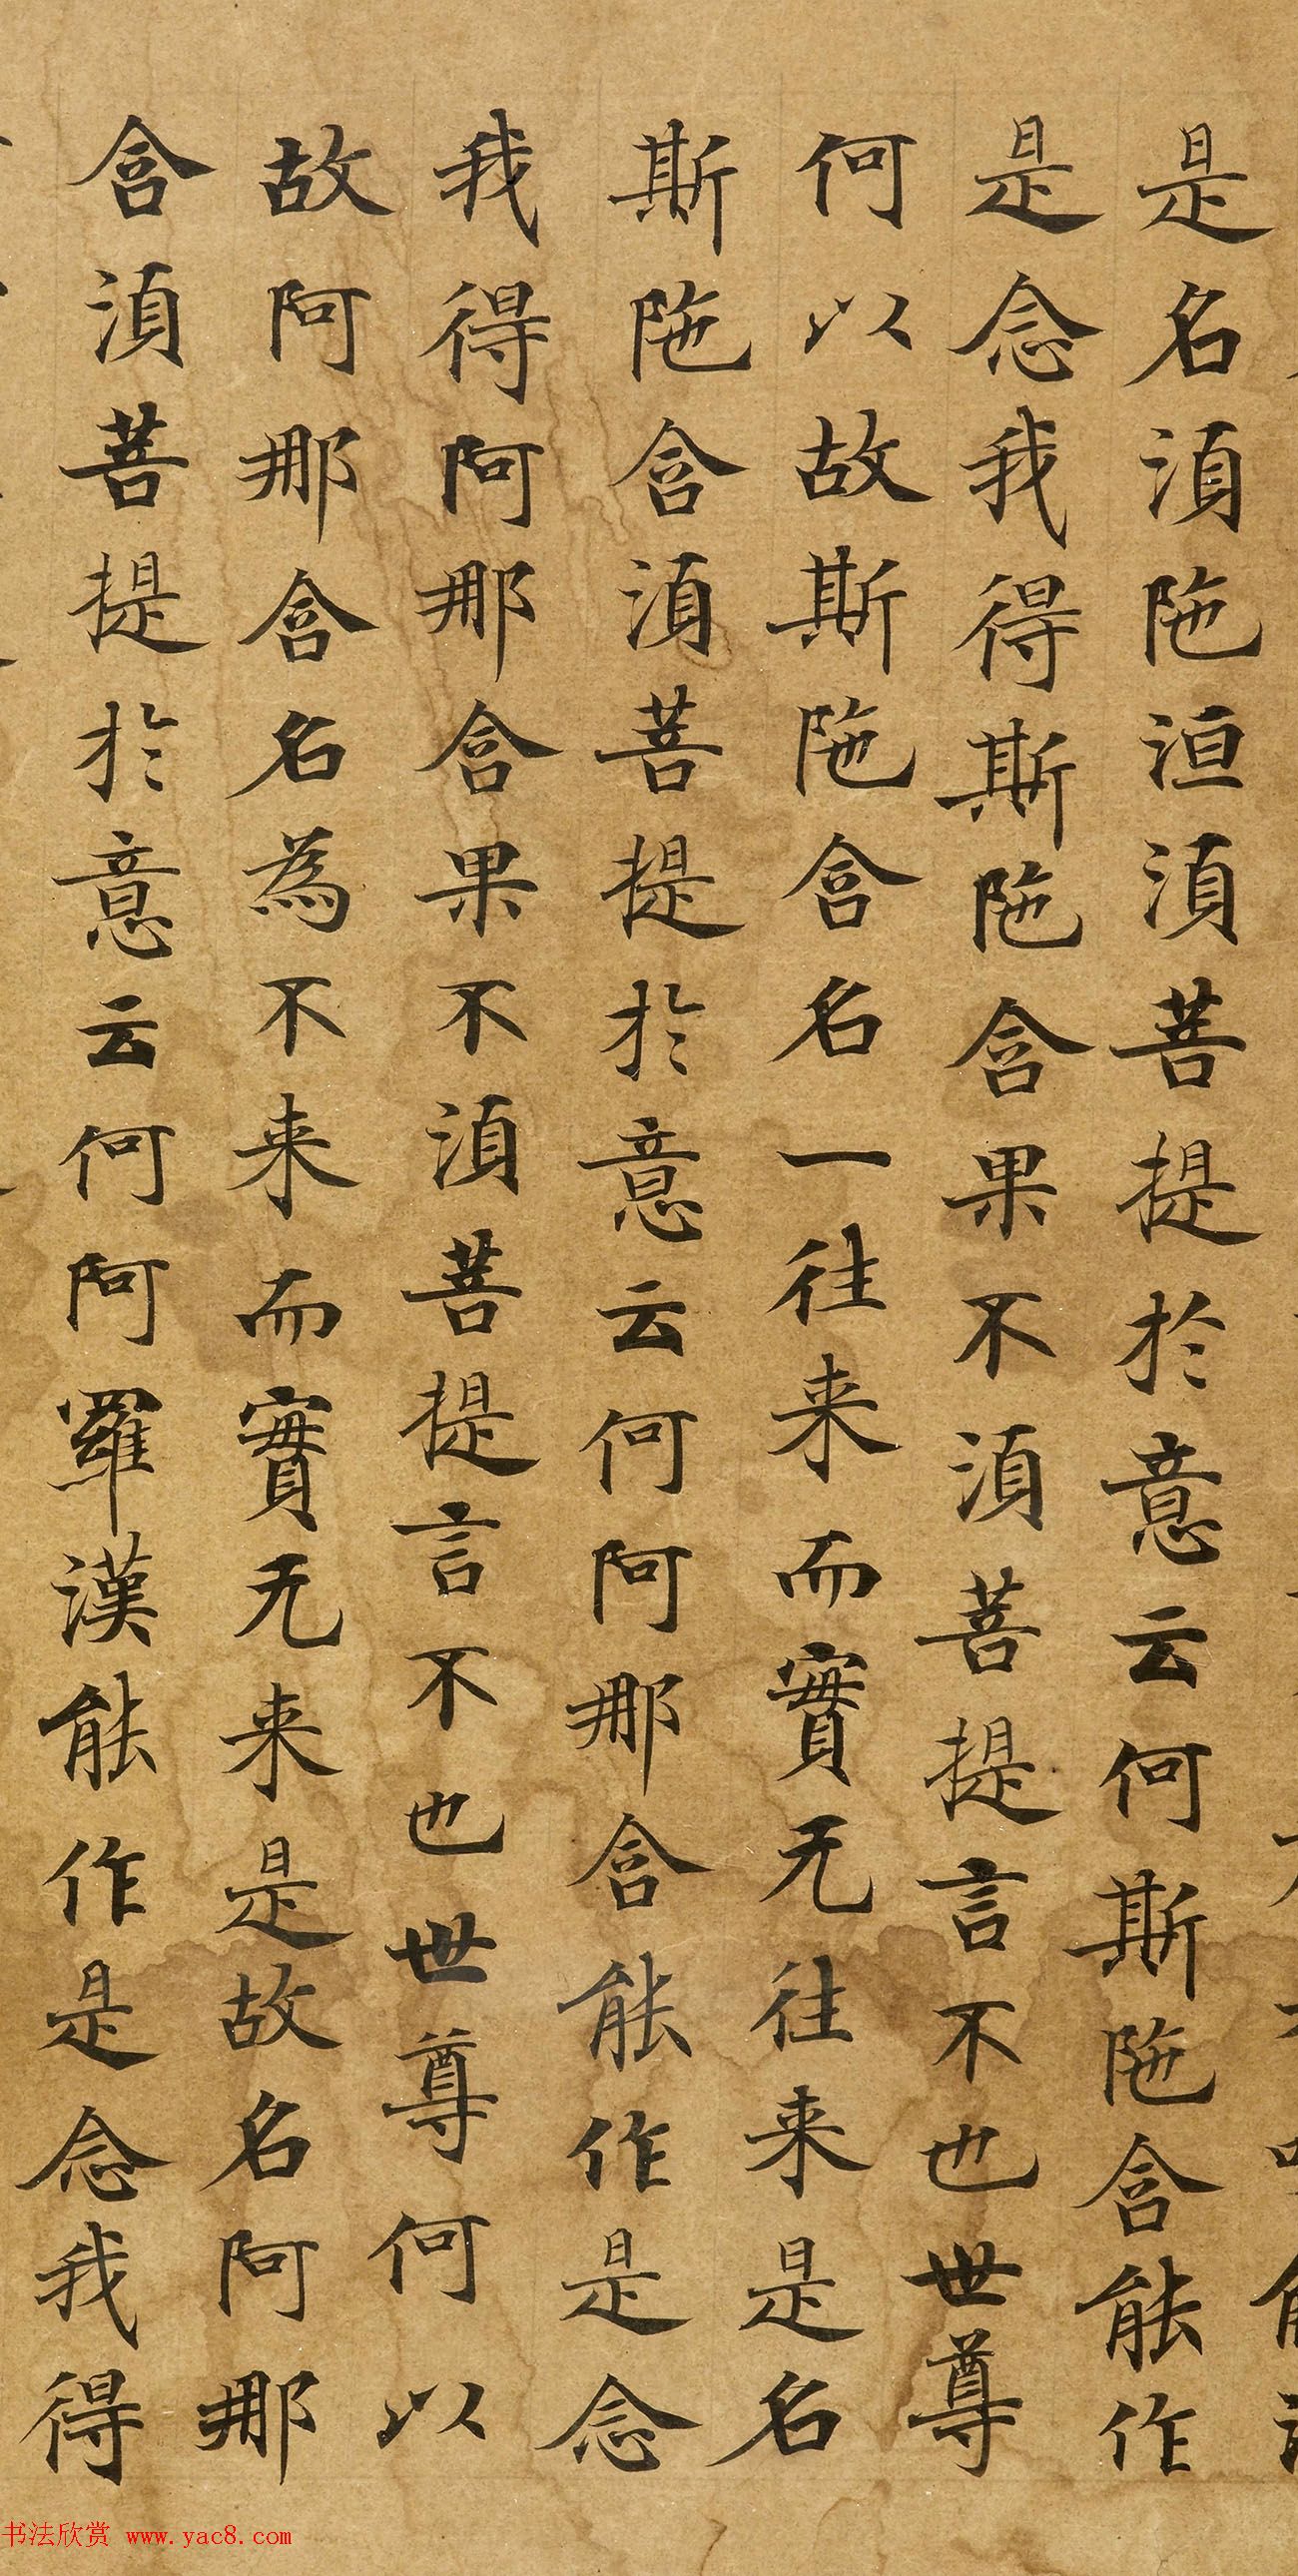 是名湏陁洹湏菩提於意云何斯陁含能作
是念我得斯陁含果不湏菩提言不也世尊
何以故斯陁含名一往来而實无往来是名
斯陁含湏菩提於意云何阿那含能作是念
我得阿那含果不湏菩提言不也世尊何以
故阿那含名為不来而實无来是故名阿那
含湏菩提於意云何阿羅漢能作是念我得
书法欣赏 www.yac8.com